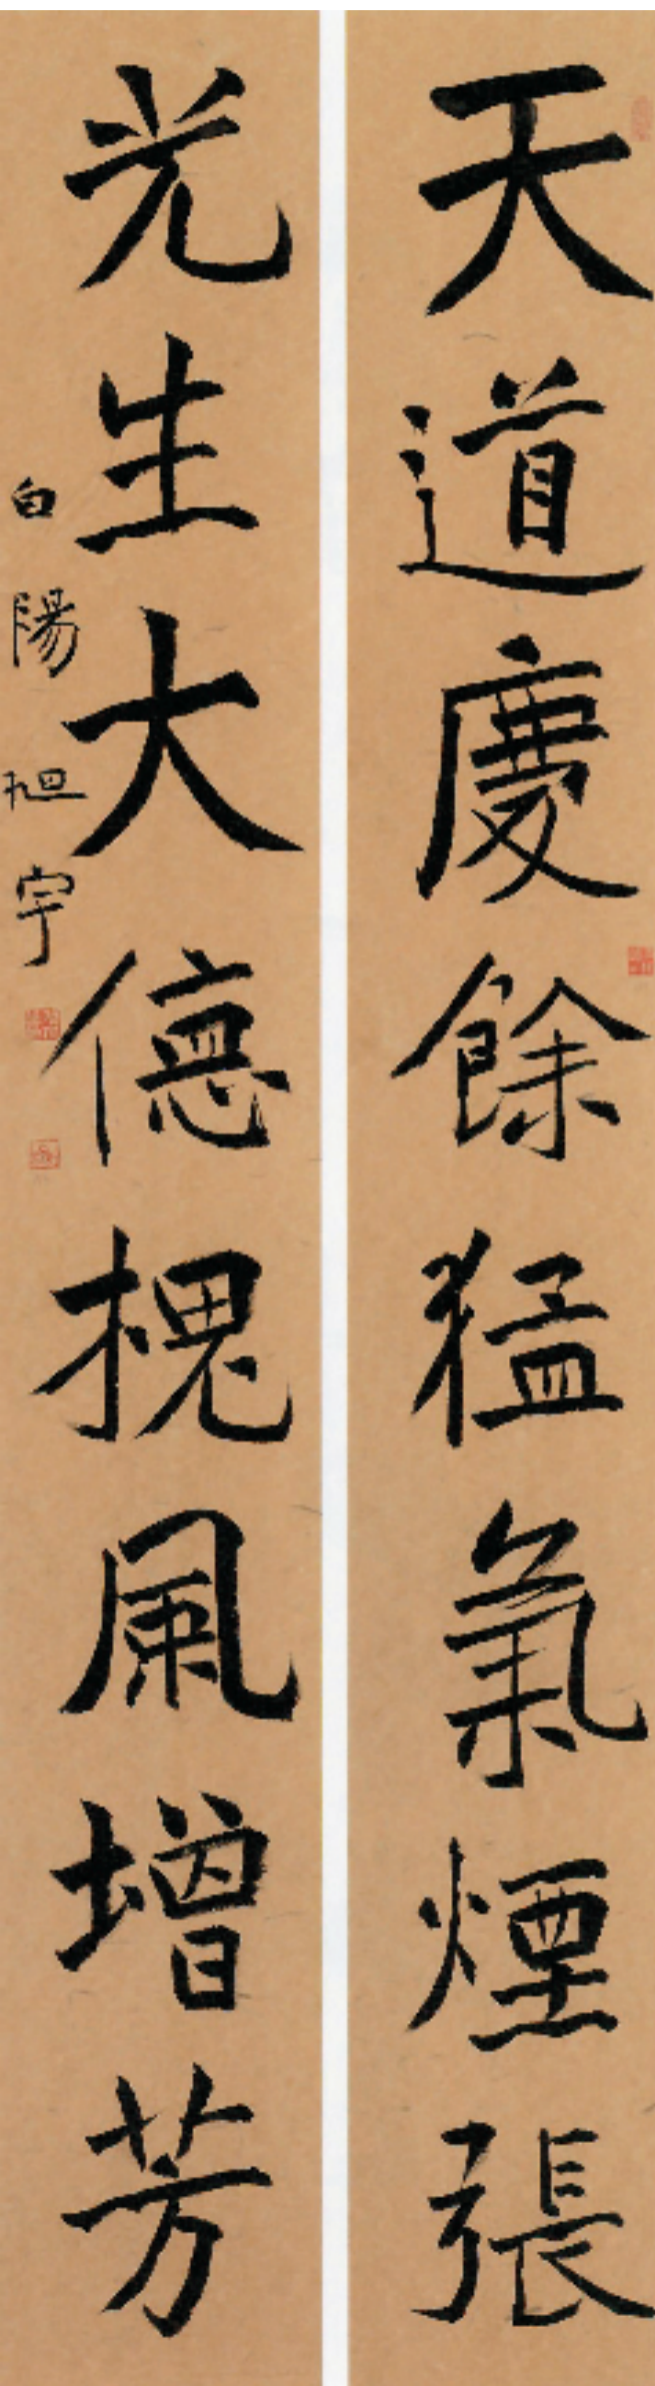 天道慶餘猛氣煙張
光生大德槐風增芳
白陽旭宇